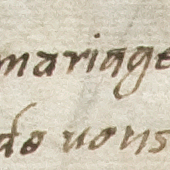 mariage
de vous